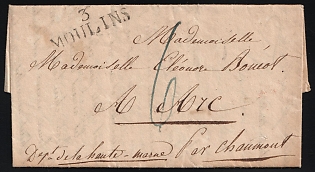 3
MOULINS
Mademoiselle,
Mademoiselle Eléonore Boucot.
A Arc
6
Dept. de la haute-marne Par Chaumont